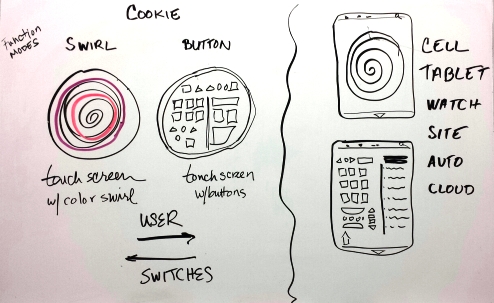 COOKIE
Function
MODES
SWIRL
BUTTON
touch screen
w/ color swirl
touch screen
w/buttons
USER
SWITCHES
CELL
TABLET
WATCH
SITE
AUTO
CLOUD